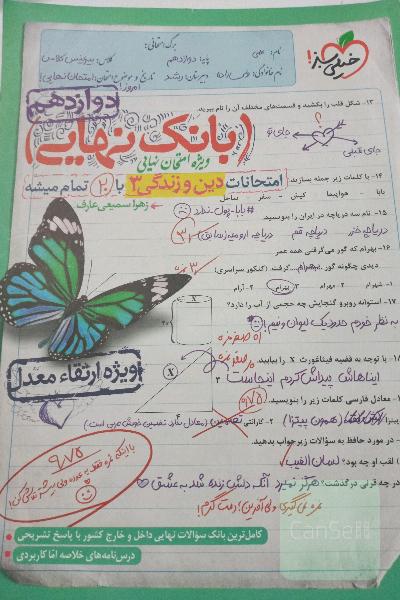 خیلی سبز!
برگ امتحانی:
نام:
پایه: دوازدهم
نام خانوادگی:
دبیرستان: رشد
تاریخ و موضوع امتحان: امتحان نهایی!
دوازدهم
۱۳- شکل قلب را بکشید و قسمت‌های مختلف آن را نام ببرید.
جای تو
جای قبلی
بانک نهایی
ویژه امتحان نهایی
امتحانات دین و زندگی ۳ با ۲۰ تمام میشه
زهرا سمیعی عارف
۱۴- با کلمات زیر جمله بسازید.
بابا - هواپیما - کیش - سفر - ساحل
#بابا-پول-ندارد
۱۵- نام سه دریاچه در ایران را بنویسید.
دریاچه خزر دریاچه قم دریاچه ارومیه (سابق)
۱۶- بهرام که گور می‌گرفتی همه عمر
دیدی چگونه گور بهرام گرفت. (کنکور سراسری)
۱- شهرام ۲- مهرام ۳- بهرام ۴- آرام
۱۷- استوانه روبرو گنجایش چه حجمی از آب را دارد؟
به نظر خودم حدود یک لیوان و نیم!
۱۸- با توجه به قضیه فیثاغورث X را بیابید.
ایناهاش پیداش کردم اینجاست
ویژه ارتقاء معدل
معادل فارسی کلمات زیر را بنویسید.
در مورد حافظ به سؤالات زیر جواب بدهید.
لقب او چه بود؟ لسان الغیب
در چه قرنی درگذشت؟ هرگز نمیرد آنکه دلش زنده شد به عشق
۹٫۷۵
کامل‌ترین بانک سؤالات نهایی داخل و خارج کشور با پاسخ تشریحی
درس‌نامه‌های خلاصه اما کاربردی